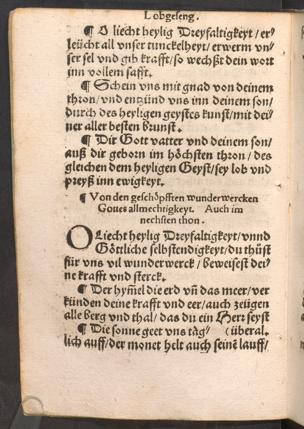 Lobgeseng.
¶ O liecht heylig Dreyfaltigkeyt / er⸗
leücht all vnser tunckelheyt / erwerm vn⸗
ser sel vnd gib krafft / so wechßt dein wort
inn vollem safft.
¶ Schein vns mit gnad von deinem
thron / vnd entzünd vns inn deinem son /
durch des heyligen geystes kunst / mit dei⸗
ner aller besten brunst.
¶ Dir Gott vatter vnd deinem son /
auß dir geborn im höchsten thron / des
gleichen dem heyligen Geyst / sey lob vnd
preyß inn ewigkeyt.
¶ Von den geschöpfften wunderwercken
Gottes allmechtigkeyt. Auch im
nechsten thon.
O Liecht heylig Dreyfaltigkeyt / vnnd
Göttliche selbstendigkeyt / du thüst
für vns vil wunderwerck / beweisest dei⸗
ne krafft vnd sterck.
¶ Der hym̃el die erd vñ das meer / ver
künden deine krafft vnd eer / auch zeügen
alle berg vnd thal / das du ein Herr seyst
¶ Die sonne geet vns täg⸗ (überal.
lich auff / der monet helt auch seinē lauff /